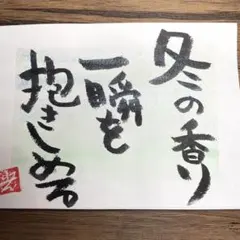 冬の香り
一瞬を
抱きしめる